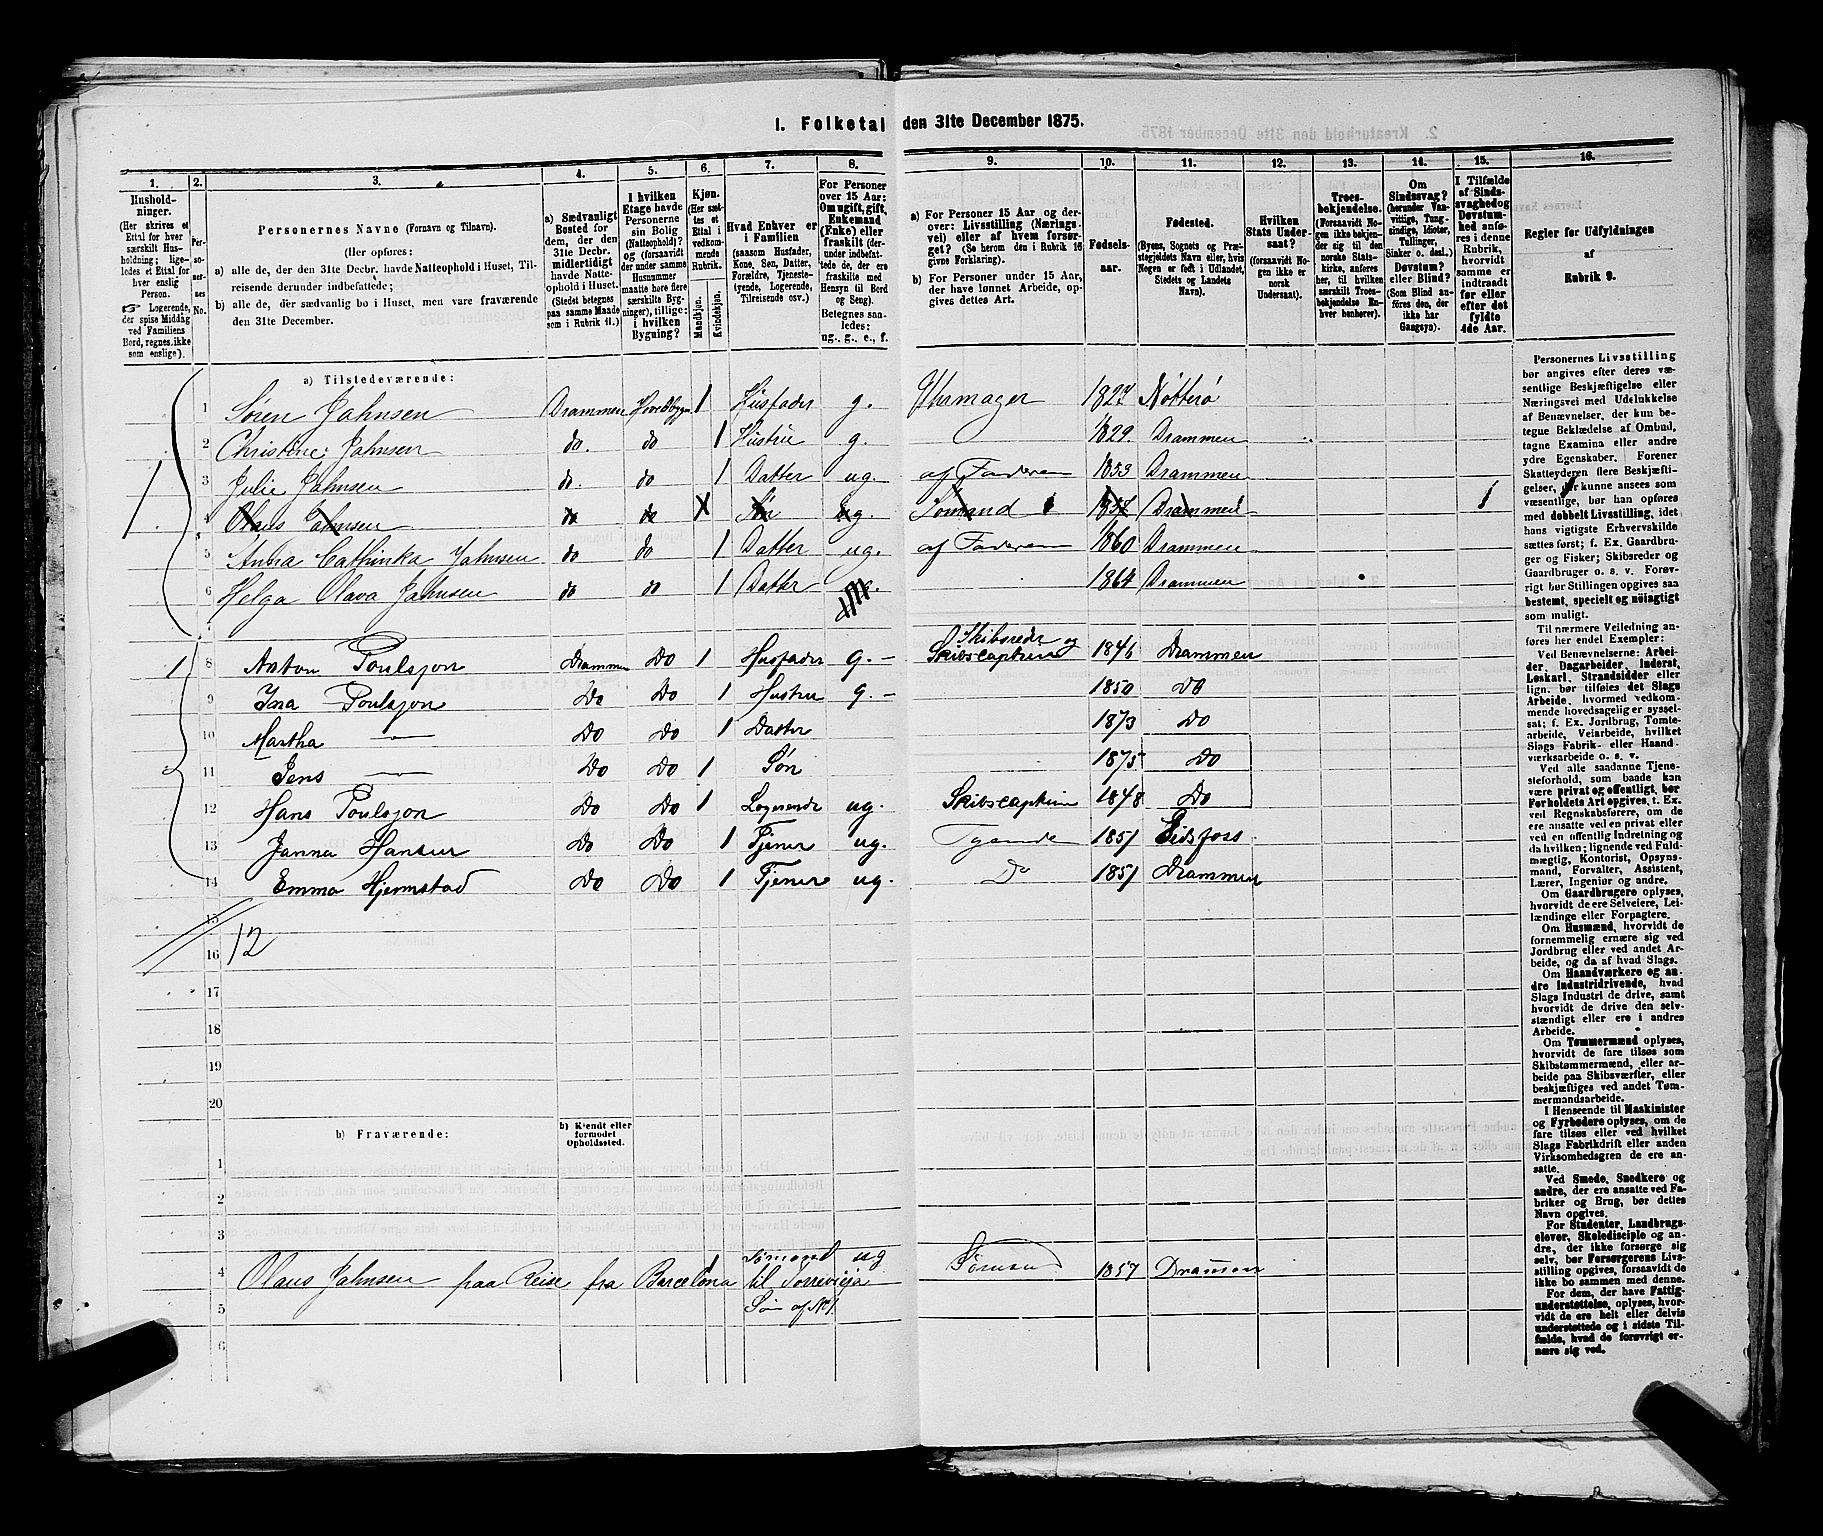 1. Folketal den 31te December 1875.
1.
2.
3.
4.
5.
6.
7.
8.
9.
10.
11.
12.
13.
14.
15.
16.
Hushold-
ninger.
(Her skrives et
Ettal for hver
særskilt Hus-
holdning; lige-
ledes et Ettal for
hver enslig
Person.
Logerende,
der spise Middag
ved Familiens
Bord, regnes ikke
som enslige).
Per-
so-
ner-
nes
No.
Personernes Navne (Fornavn og Tilnavn).
(Her opføres:
a) alle de, der den 31te Decbr. havde Natteophold i Huset, Til-
reisende derunder indbefattede;
b) alle de, der sædvanlig bo i Huset, men vare fraværende
den 31te December.
a) Sædvanligt
Bosted for
dem, der den
31te Decbr.
midlertidigt
havde Natte-
ophold i Huset.
(Stedet betegnes
paa samme Maade
som i Rubrik 11.)
I hvilken
Etage havde
Personerne
sin Bolig
(Natteophold)?
og (forsaavidt
der under samme
Husnummer
maatte høre flere
særskilte Byg-
ninger), tillige:
i hvilken
Bygning?
Kjøn.
(Her sæt-
tes et
Ettal i
vedkom-
mende
Rubrik.
Mandkjøn.
Kvindekjøn.
Hvad Enhver er
i Familien
(saasom Husfader,
Kone, Søn, Datter,
Forældre, Tjeneste-
tyende, Logerende,
Tilreisende osv.)
For Personer
over 15 Aar:
Om ugift, gift,
Enkemand
(Enke) eller
fraskilt (der-
under indbefat-
tede de, der ere
fraskilte med
Hensyn til Bord
og Seng).
Betegnes saa-
ledes:
ug., g., e., f.
a) For Personer 15 Aar og der-
over: Livsstilling (Nærings-
vei) eller af hvem forsør-
get? (Se herom den i Rubrik 16
givne Forklaring).
b) For Personer under 15 Aar,
der have lønnet Arbeide, op-
gives dettes Art.
Fødsels-
aar.
Fødested.
(Byens, Sognets og Præ-
stegjeldets Navn eller, hvis
Nogen er født i Udlandet,
Stedets og Landets
Navn).
Hvilken
Stats Under-
saat?
(forsaavidt No-
gen ikke er
norsk
Undersaat).
Troes-
bekjendelse.
(Forsaavidt No-
gen ikke bekjen-
der sig til den
norske Stats-
kirke, anføres
her, til hvilken
særskilt Troes-
bekjendelse En-
hver henhører).
Om
Sindssvag?
(herunder Van-
vittige, Tung-
sindige, Idioter,
Tullinger,
Sinker o. desl.)
Døvstum?
eller Blind?
(Som Blind an-
føres den, der
ikke har
Gangsyn).
I Tilfælde
af Sinds-
svaghed og
Døvstum-
hed anfø-
res i denne
Rubrik,
hvorvidt
samme er
indtraadt
før eller
efter det
fyldte
4de Aar.
Regler for Udfyldningen
af
Rubrik 9.
a) Tilstedeværende:
1 Søren Jahnsen Drammen Hovedbygn 1 Husfader g. Uhrmager 1827 Nøtterö
2 Christine Jahnsen do. do 1 Hustru g. 1829 Drammen
3 Julie Jahnsen do. do 1 Datter ug. af Faderen 1853 Drammen
1 4 Olaus Jahnsen do do Søn ug. Sømand 1857 Drammen 1
5 Anna Cathinka Jahnsen do do 1 Datter ug. af Faderen 1860 Drammen
6 Helga Olava Jahnsen do do 1 Datter 1864 Drammen
7
Skibsreder og
1 8 Anton Poulsson Drammen Do 1 Husfader g. – Skibscaptein 1846 Drammen
9 Ina Poulsson Do Do 1 Hustru g. – 1850 Do
10 Martha — Do Do 1 Datter 1873 Do
11 Jens — Do Do 1 Søn 1875 Do
12 Hans Poulsson Do Do 1 Logerende ug. Skibscaptein 1848 Do
13 Janna Hansen Do Do 1 Tjener ug. Tyende 1851 Eidsfoss
14 Emma Hjermstad Do Do 1 Tjener ug. Do 1851 Drammen
15
16 12
17
18
19
20
b) Fraværende:
b) Kjendt eller
formodet
Opholdssted.
1
2
3
Sømand ug
4 Olaus Jahnsen paa Reise fra Barcelona 1 til Torrevieja Sømand 1857 Drammen
5 Søn af No 1.
6
Personernes Livsstilling
bør angives efter deres væ-
sentlige Beskjæftigelse eller
Næringsvei med Udelukkelse
af Benævnelser, der kun be-
tegne Beklædelse af Ombud,
tagne Examina eller andre
ydre Egenskaber. Forener
Skatteyderen flere Beskjæfti-
gelser, der kunne ansees som
væsentlige, bør han opføres
med dobbelt Livsstilling, idet
hans vigtigste Erhvervskilde
sættes først; f. Ex. Gaardbru-
ger og Fisker; Skibsreder og
Gaardbruger o. s. v. Forøv-
rigt bør Stillingen opgives saa
bestemt, specielt og nøiagtigt
som muligt.
Til nærmere Veiledning an-
føres her endel Exempler:
Ved Benævnelserne: Arbei-
der, Dagarbeider, Inderst,
Løskarl, Strandsidder eller
lign. bør tilføies det Slags
Arbeide, hvormed vedkom-
mende hovedsagelig er syssel-
sat; f. Ex. Jordbrug, Tomte-
arbeide, Veiarbeide, hvilket
Slags Fabrik- eller Haand-
værksarbeide o. s. v.
Ved alle saadanne Tjene-
steforhold, som baade kan
være privat og offentligt, bør
Forholdets Art opgives, t. Ex.
ved Regnskabsførere, om de
ere ansatte ved en privat eller
ved en offentlig Indretning og
da hvilken; lignende ved Fuld-
mægtig, Kontorist, Opsyns-
mand, Forvalter, Assistent,
Lærer, Ingeniør og andre.
Om Gaardbrugere oplyses,
hvorvidt de ere Selveiere, Lei-
lændinge eller Forpagtere.
Om Husmænd, hvorvidt de
fornemmelig ernære sig ved
Jordbrug eller ved andet Ar-
beide, og da af hvad Slags.
Om Haandværkere og an-
dre Industridrivende, hvad
Slags Industri de drive, samt
hvorvidt de drive den selv-
stændigt eller ere i andres
Arbeide.
Om Tømmermænd oplyses,
hvorvidt de fare tilsøs som
Skibstømmermænd, eller ar-
beide paa Skibsværfter, eller
beskjæftiges ved andet Tøm-
mermandsarbeide.
I Henseende til Maskinister
og Fyrbødere oplyses, om de
fare tilsøs eller ved hvilket
Slags Fabrikdrift eller anden
Virksomhedsgren de ere an-
satte.
Ved Smede, Snedkere og
andre, der ere ansatte ved Fa-
briker og Brug, bør dettes
Navn opgives.
For Studenter, Landbrugs-
elever, Skoledisciple og an-
dre, der ikke forsørge sig
selv, bør Forsørgerens Livs-
stilling opgives, forsaavidt de
ikke bo sammen med denne.
For dem, der have Fattig-
understøttelse, oplyses, hvor-
vidt de ere helt eller delvis
understøttede og i sidste Til-
fælde, hvad de forøvrigt er-
nære sig ved.